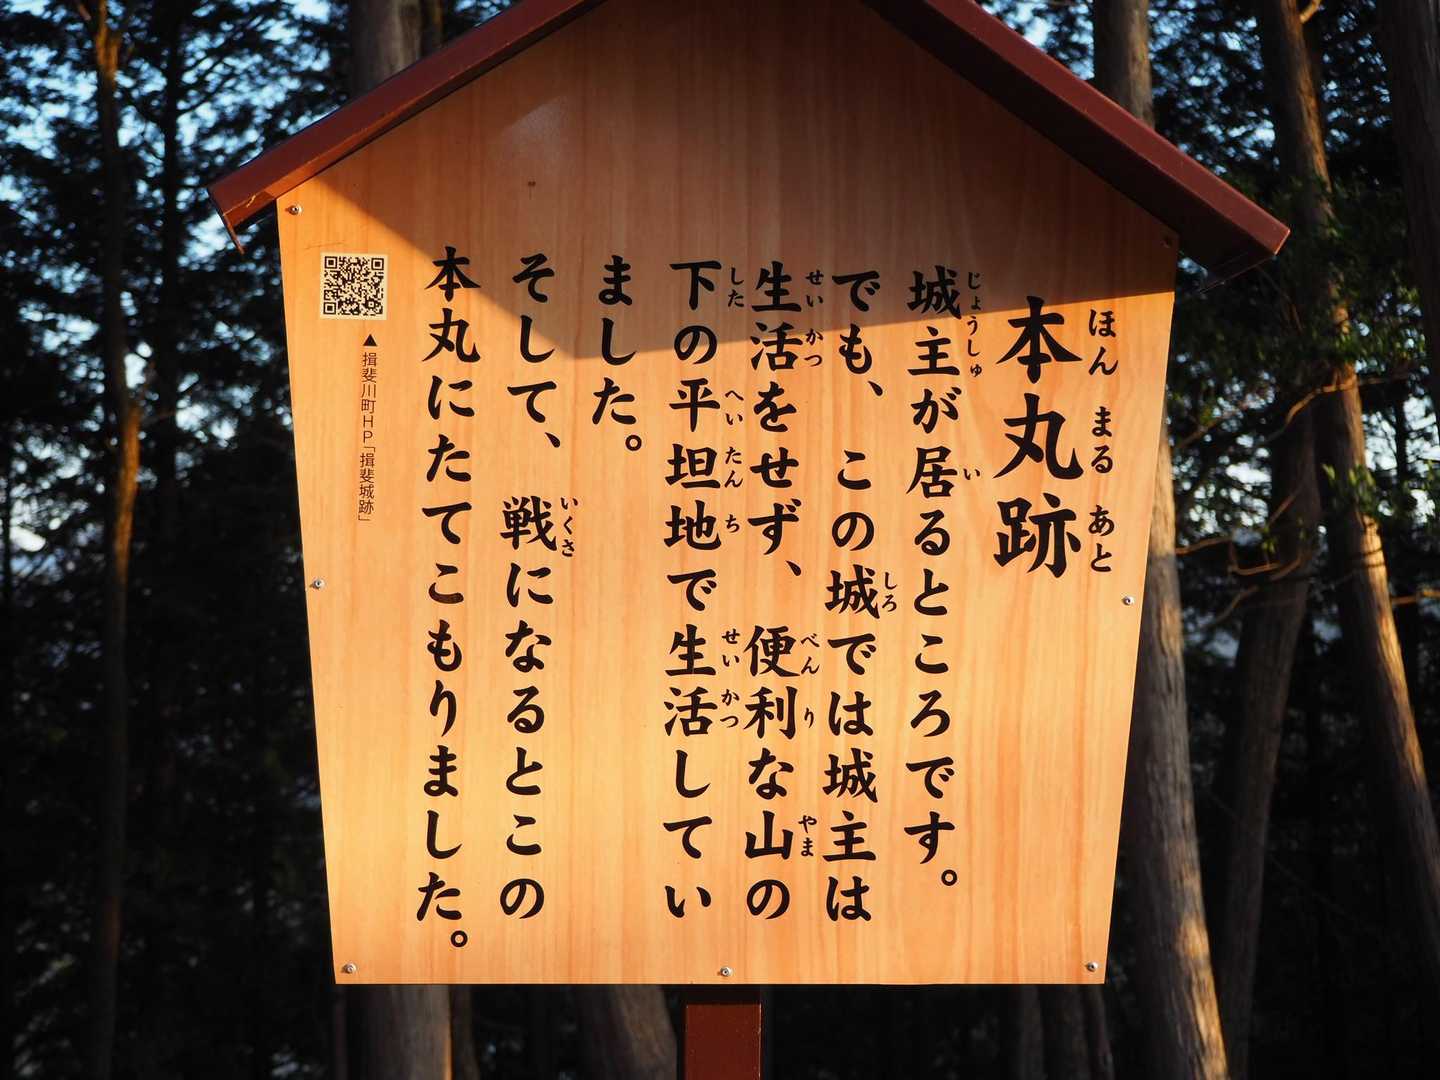 本丸跡
ほんまるあと
城主が居るところです。
じょうしゅ
い
でも、この城では城主は
しろ
生活をせず、便利な山の
せいかつ
べんり
やま
下の平坦地で生活してい
した
へいたんち
せいかつ
ました。
そして、戦になるとこの
いくさ
本丸にたてこもりました。
▲揖斐川町HP「揖斐城跡」